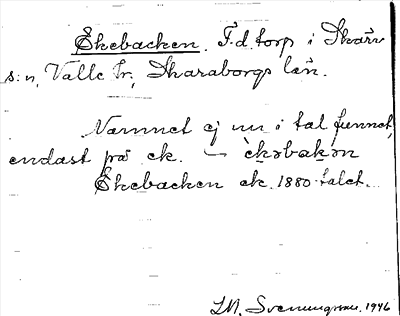 Ekebacken. F.d. torp i Skärv
s:n, Valle hr, Skaraborgs län.
Namnet ej nu i tal funnet,
endast på ek. — èkəbakən
Ekebacken ek. 1880-talet.
Svenungsson. 1946